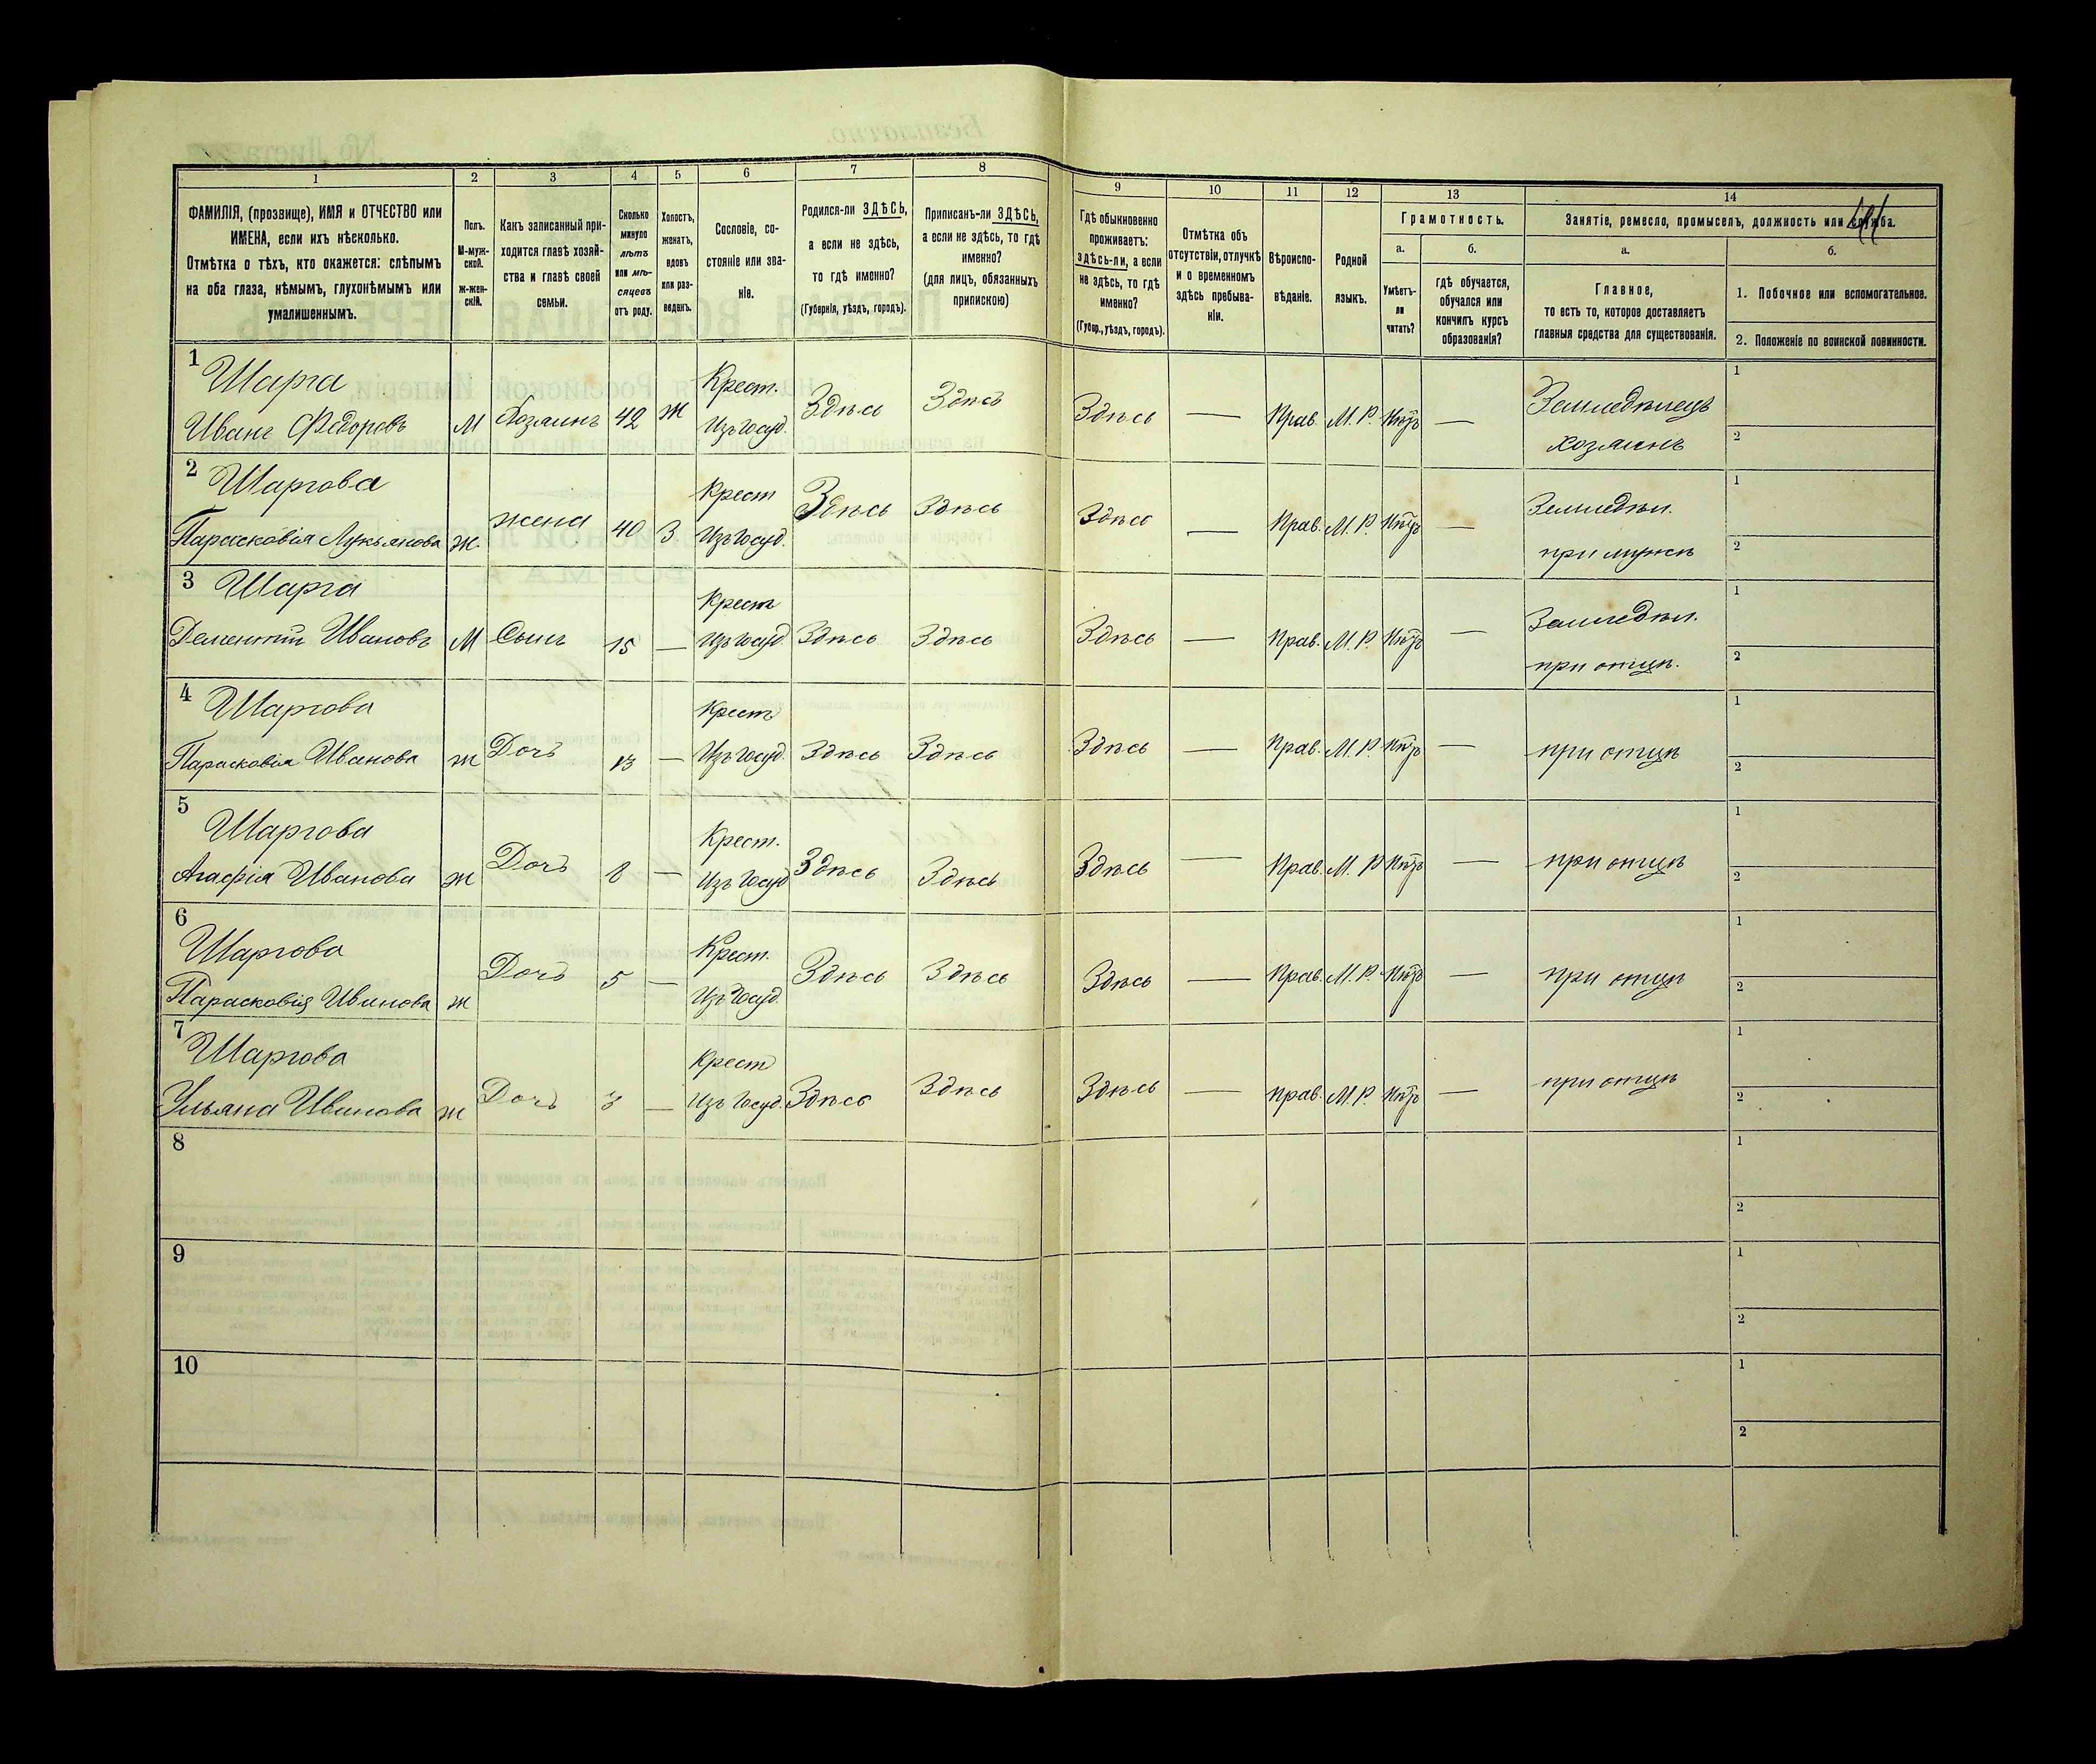 1 2 3 4 5 6 7 8 9 10 11 12 13 14
ФАМИЛІЯ, (прозвище), ИМЯ и ОТЧЕСТВО или
ИМЕНА, если ихъ нѣсколько.
Отмѣтка о тѣхъ, кто окажется: слѣпымъ
на оба глаза, нѣмымъ, глухонѣмымъ или
умалишеннымъ.
Полъ.
М-муж-
ской.
ж-жен-
скій.
Какъ записанный при-
ходится главѣ хозяй-
ства и главѣ своей
семьи.
Сколько
минуло
лѣтъ
или мѣ-
сяцевъ
отъ роду.
Холостъ,
женатъ,
вдовъ
или раз-
веденъ.
Сословіе, со-
стояніе или зва-
ніе.
Родился-ли ЗДѢСЬ,
а если не здѣсь,
то гдѣ именно?
(Губернія, уѣздъ, городъ).
Приписанъ-ли ЗДѢСЬ,
а если не здѣсь, то гдѣ
именно?
(для лицъ, обязанныхъ
припискою)
Гдѣ обыкновенно
проживаетъ:
здѣсь-ли, а если
не здѣсь, то гдѣ
именно?
(Губер., уѣздъ, городъ).
Отмѣтка объ
отсутствіи, отлучкѣ
и о временномъ
здѣсь пребыва-
ніи.
Вѣроиспо-
вѣданіе.
Родной
языкъ.
Грамотность.
а.
Умѣетъ-
ли
читать?
б.
гдѣ обучается,
обучался или
кончилъ курсъ
образованія?
Занятіе, ремесло, промыселъ, должность или служба.
а.
Главное,
то есть то, которое доставляетъ
главныя средства для существованія.
б.
1. Побочное или вспомогательное.
2. Положеніе по воинской повинности.
1 Шарга Крест. Земледѣлецъ 1
Иванъ Федоровъ М Хозяинъ 42 Ж Изъ Госуд. Здѣсь Здѣсь Здѣсь — Прав. М. Р. Нѣтъ — хозяинъ 2
2 Шаргова Крест Земледѣл. 1
Парасковія Лукьянова ж. жена 40 З Изъ Госуд. Здѣсь Здѣсь Здѣсь — Прав. М. Р. Нѣтъ — при мужѣ 2
3 Шарга Крест Земледѣл. 1
Дементій Ивановъ М Сынъ 15 — Изъ Госуд. Здѣсь Здѣсь Здѣсь — Прав. М. Р. Нѣтъ — при отцѣ. 2
4 Шаргова Крест 1
Парасковія Иванова ж Дочь 13 — Изъ Госуд. Здѣсь Здѣсь Здѣсь — Прав. М. Р. Нѣтъ — при отцѣ 2
5 Шаргова Крест. 1
Агафія Иванова ж Дочь 8 — Изъ Госуд Здѣсь Здѣсь Здѣсь — Прав. М. Р Нѣтъ — при отцѣ 2
6 Шаргова Крест. 1
Парасковія Иванова ж Дочь 5 — Изъ Госуд Здѣсь Здѣсь Здѣсь — Прав. М. Р. Нѣтъ — при отцѣ 2
7 Шаргова Крест 1
Ульяна Иванова ж Дочь 3 — Изъ Госуд. Здѣсь Здѣсь Здѣсь — Прав. М. Р. Нѣтъ — при отцѣ 2
8 1
2
9 1
2
10 1
2